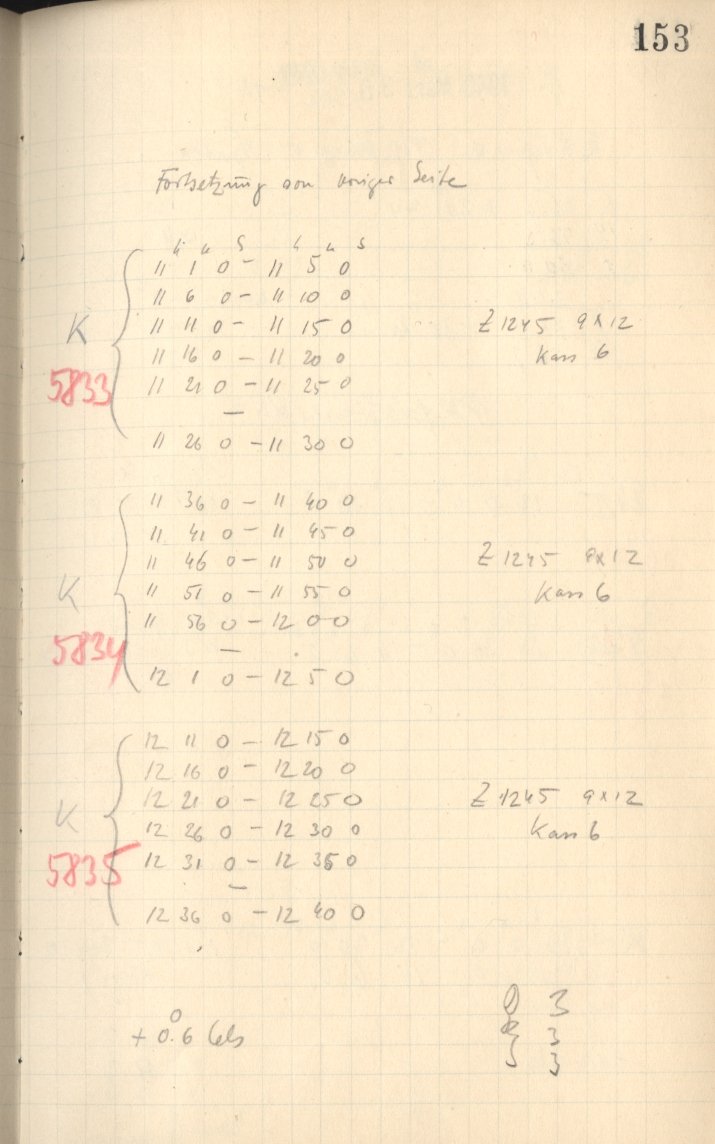 153
Fortsetzung von voriger Seite
h m s h m s
11 1 0 – 11 5 0
11 6 0 – 11 10 0
11 11 0 – 11 15 0
11 16 0 – 11 20 0
11 21 0 – 11 25 0
–
11 26 0 – 11 30 0
K
5833
Z 1245 9x12
Kass 6
11 36 0 – 11 40 0
11 41 0 – 11 45 0
11 46 0 – 11 50 0
11 51 0 – 11 55 0
11 56 0 – 12 0 0
–
12 1 0 – 12 5 0
K
5834
Z 1245 9x12
Kass 6
12 11 0 – 12 15 0
12 16 0 – 12 20 0
12 21 0 – 12 25 0
12 26 0 – 12 30 0
12 31 0 – 12 35 0
–
12 36 0 – 12 40 0
K
5835
Z 1245 9x12
Kass 6
+ 0°.6 Cels
3
3
S 3